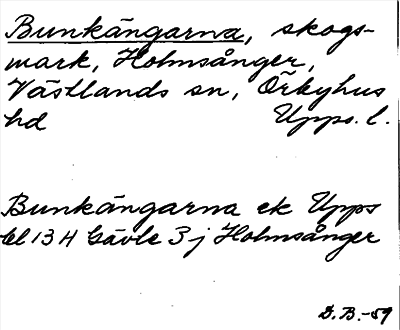 Bunkängarna, skogs-
mark, Holmsånger,
Västlands sn, Örbyhus
hd Upps. l.
Bunkängarna ek Upps
bl 13 H Gävle 3 j Holmsånger
D. B. -59